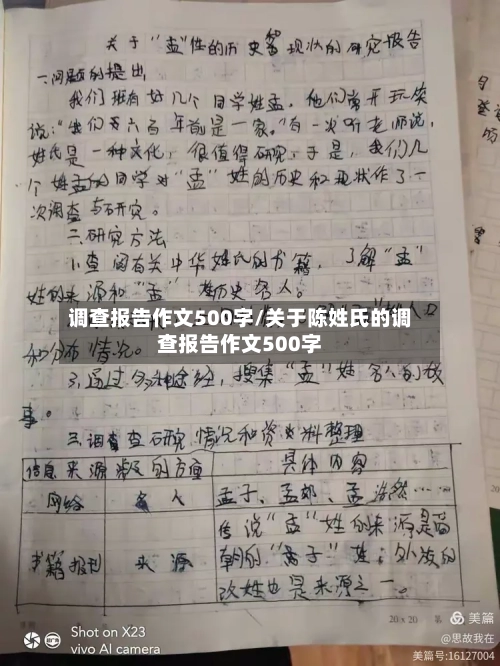 关于“孟”性的历史和现状的研究报告
一、问题的提出
我们班有好几个同学姓孟，他们常开玩笑
说：“我们五六百年前是一家。”有一次听老师说，
姓氏是一种文化，很值得研究，于是，我们几
个姓孟的同学对“孟”姓的历史和现状作了一
次调查与研究。
二、研究方法
1.查阅有关中华姓氏的书籍，了解“孟”
姓的来源和“孟”姓历史名人。
调查报告作文500字/关于陈姓氏的调
查报告作文500字
口
和分布情况。
3.通过多种途径，搜集“孟”姓名人的故
事。
三、调查研究情况和资料整理
信息来源 涉及的方面 具体内容
网络 名人 孟子、孟郊、孟浩然……
书籍报刊 来源
传说“孟”姓的来源是
朝的“
改姓也是来源之一。
20×20
Shot on X23
vivo AI camera
美篇
@思故我在
美篇号:16127004